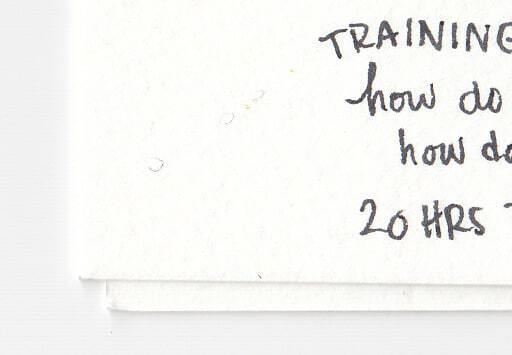 TRAINING
how do
how do
20 HRS